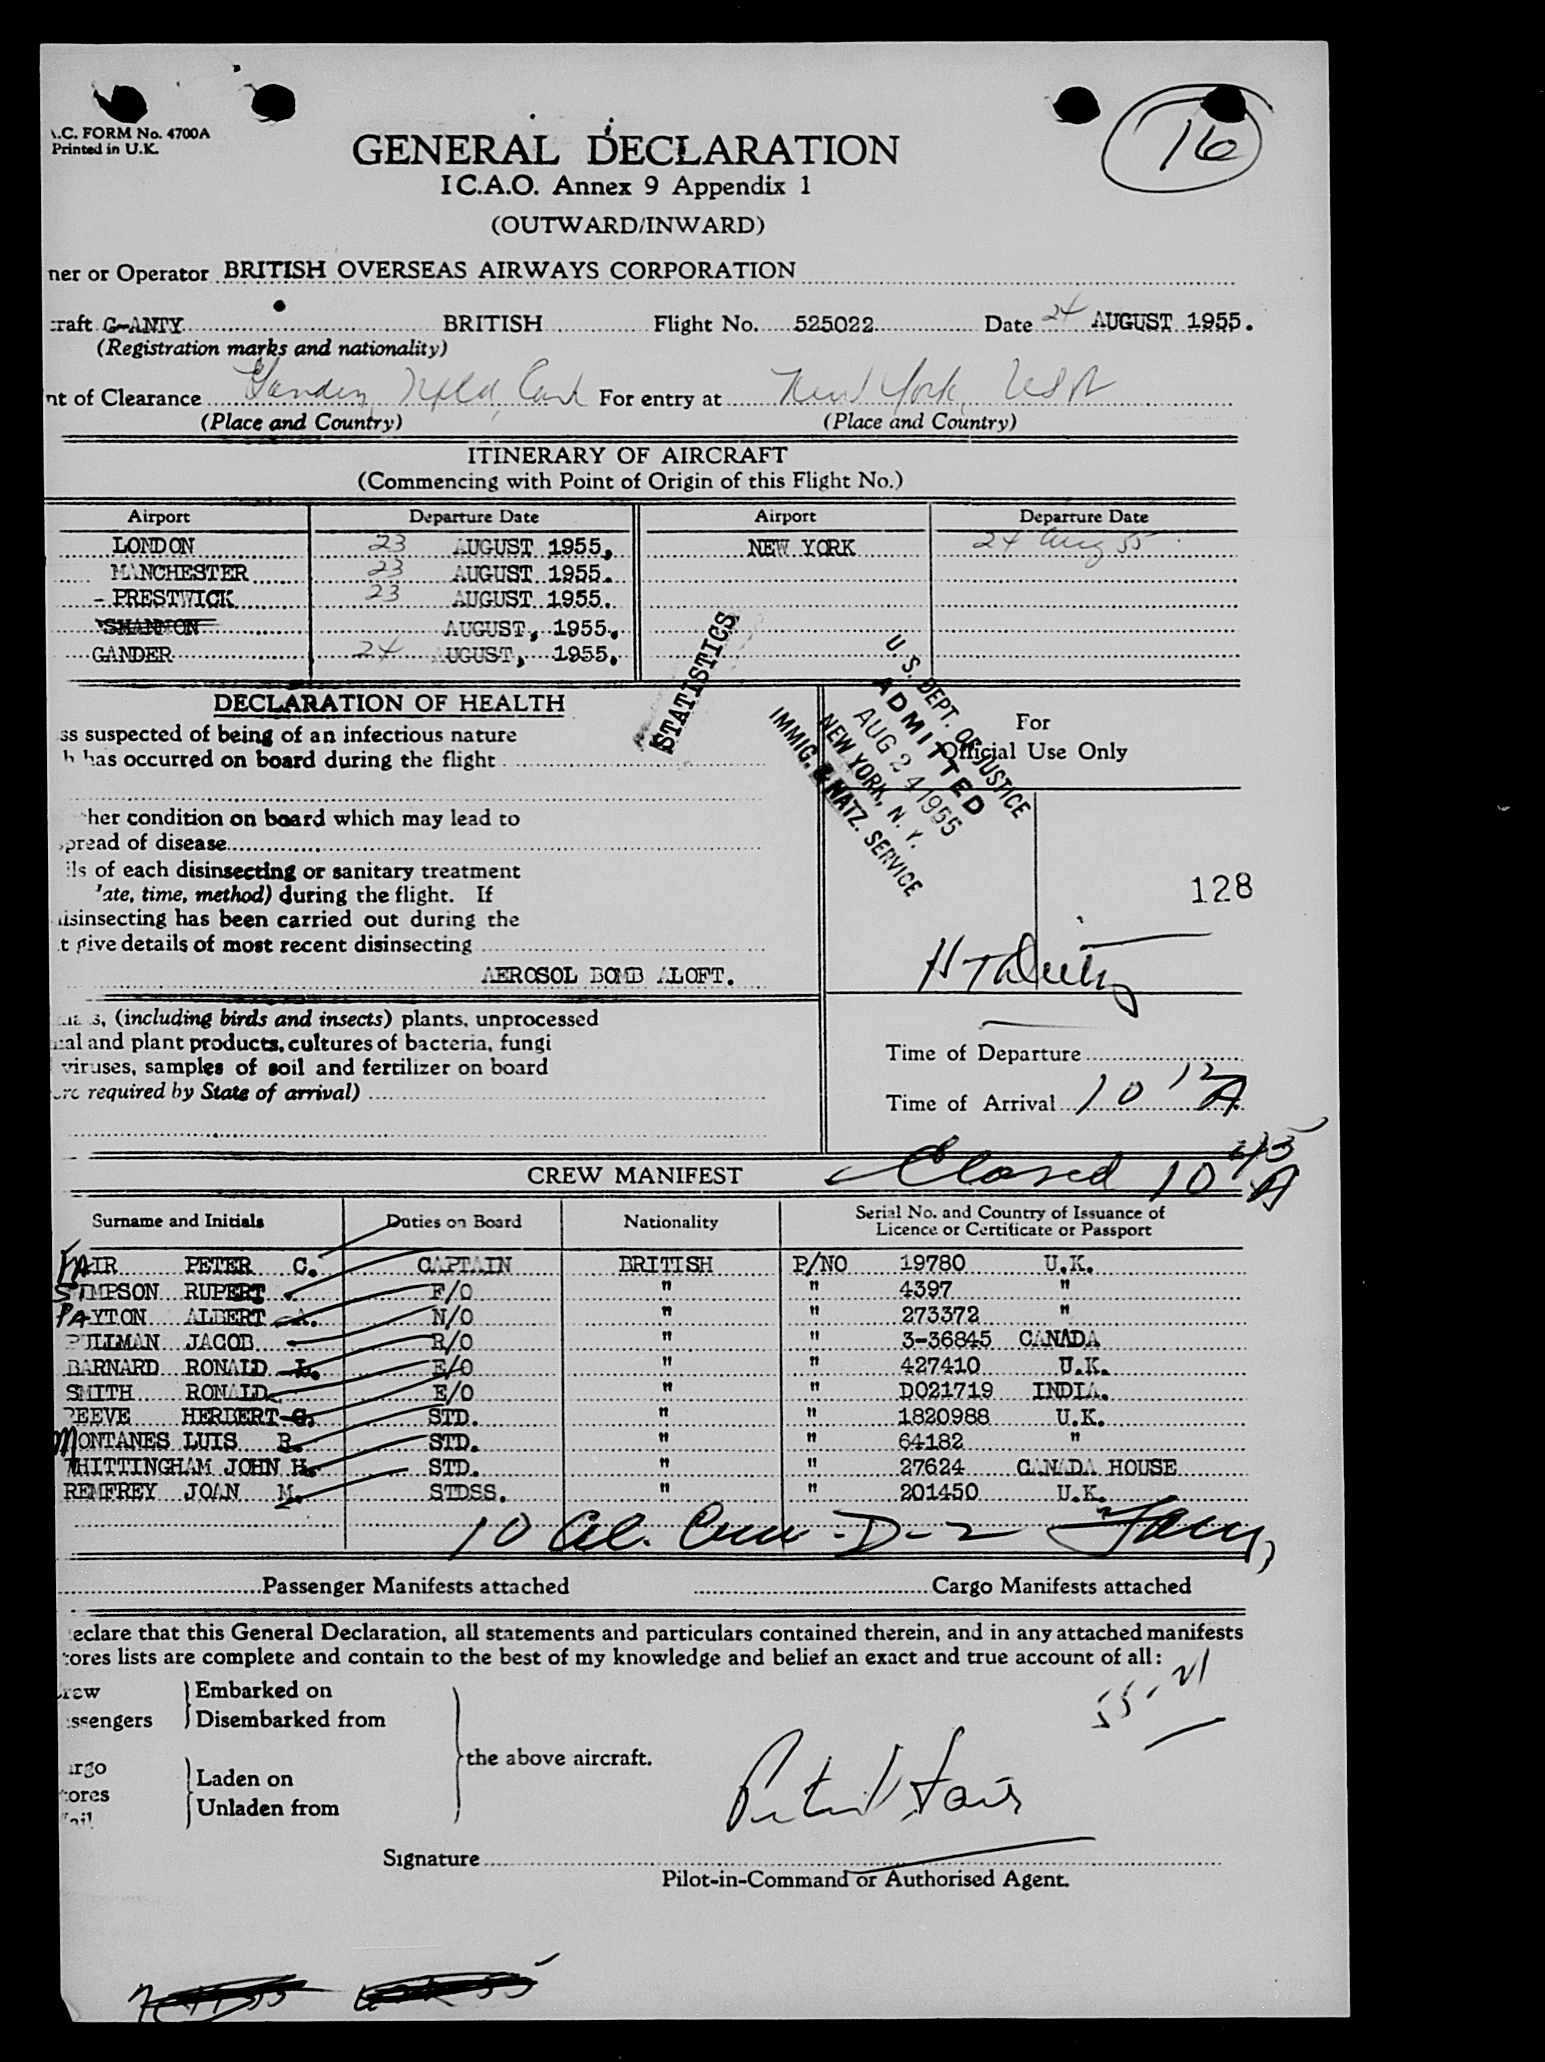 .C. FORM No. 4700A
Printed in U.K.
16
GENERAL DECLARATION
I C.A.O. Annex 9 Appendix 1
(OUTWARD/INWARD)
ner or Operator BRITISH OVERSEAS AIRWAYS CORPORATION
raft G-ANTY BRITISH Flight No. 525022 Date 24 AUGUST 1955.
(Registration marks and nationality)
nt of Clearance Gander, Nfld, Can For entry at New York, USA
(Place and Country) (Place and Country)
ITINERARY OF AIRCRAFT
(Commencing with Point of Origin of this Flight No.)
Airport Departure Date Airport Departure Date
LONDON 23 AUGUST 1955, NEW YORK 24 Aug 55
MANCHESTER 23 AUGUST 1955.
- PRESTWICK 23 AUGUST 1955.
SHANNON AUGUST, 1955,
GANDER 24 AUGUST, 1955,
STATISTICS
U. S. DEPT. OF JUSTICE
ADMITTED
AUG 24 1955
NEW YORK, N. Y.
IMMIG. & NATZ. SERVICE
DECLARATION OF HEALTH
For
Official Use Only
ss suspected of being of an infectious nature
h has occurred on board during the flight
her condition on board which may lead to
pread of disease
ils of each disinsecting or sanitary treatment
ate, time, method) during the flight. If
disinsecting has been carried out during the
t give details of most recent disinsecting
AEROSOL BOMB ALOFT.
128
s, (including birds and insects) plants, unprocessed
al and plant products, cultures of bacteria, fungi
viruses, samples of soil and fertilizer on board
ere required by State of arrival)
Time of Departure
Time of Arrival 10 12 A
CREW MANIFEST
Closed 10 45 A
Surname and Initials Duties on Board Nationality Serial No. and Country of Issuance of
Licence or Certificate or Passport
FAIR PETER C. CAPTAIN BRITISH P/NO 19780 U.K.
SIMPSON RUPERT F/O " " 4397 "
PAYTON ALBERT A. N/O " " 273372 "
PULLMAN JACOB R/O " " 3-36845 CANADA
BARNARD RONALD L. E/O " " 427410 U.K.
SMITH RONALD E/O " " D021719 INDIA.
REEVE HERBERT G. STD. " " 1820988 U.K.
MONTANES LUIS R. STD. " " 64182 "
WHITTINGHAM JOHN H. STD. " " 27624 CANADA HOUSE
REMFREY JOAN M. STDSS. " " 201450 U.K.
10 al. Crew - D-2
Passenger Manifests attached Cargo Manifests attached
eclare that this General Declaration, all statements and particulars contained therein, and in any attached manifests
tores lists are complete and contain to the best of my knowledge and belief an exact and true account of all:
rew Embarked on
ssengers Disembarked from
the above aircraft.
argo Laden on
tores
ail Unladen from
Signature
Pilot-in-Command or Authorised Agent.